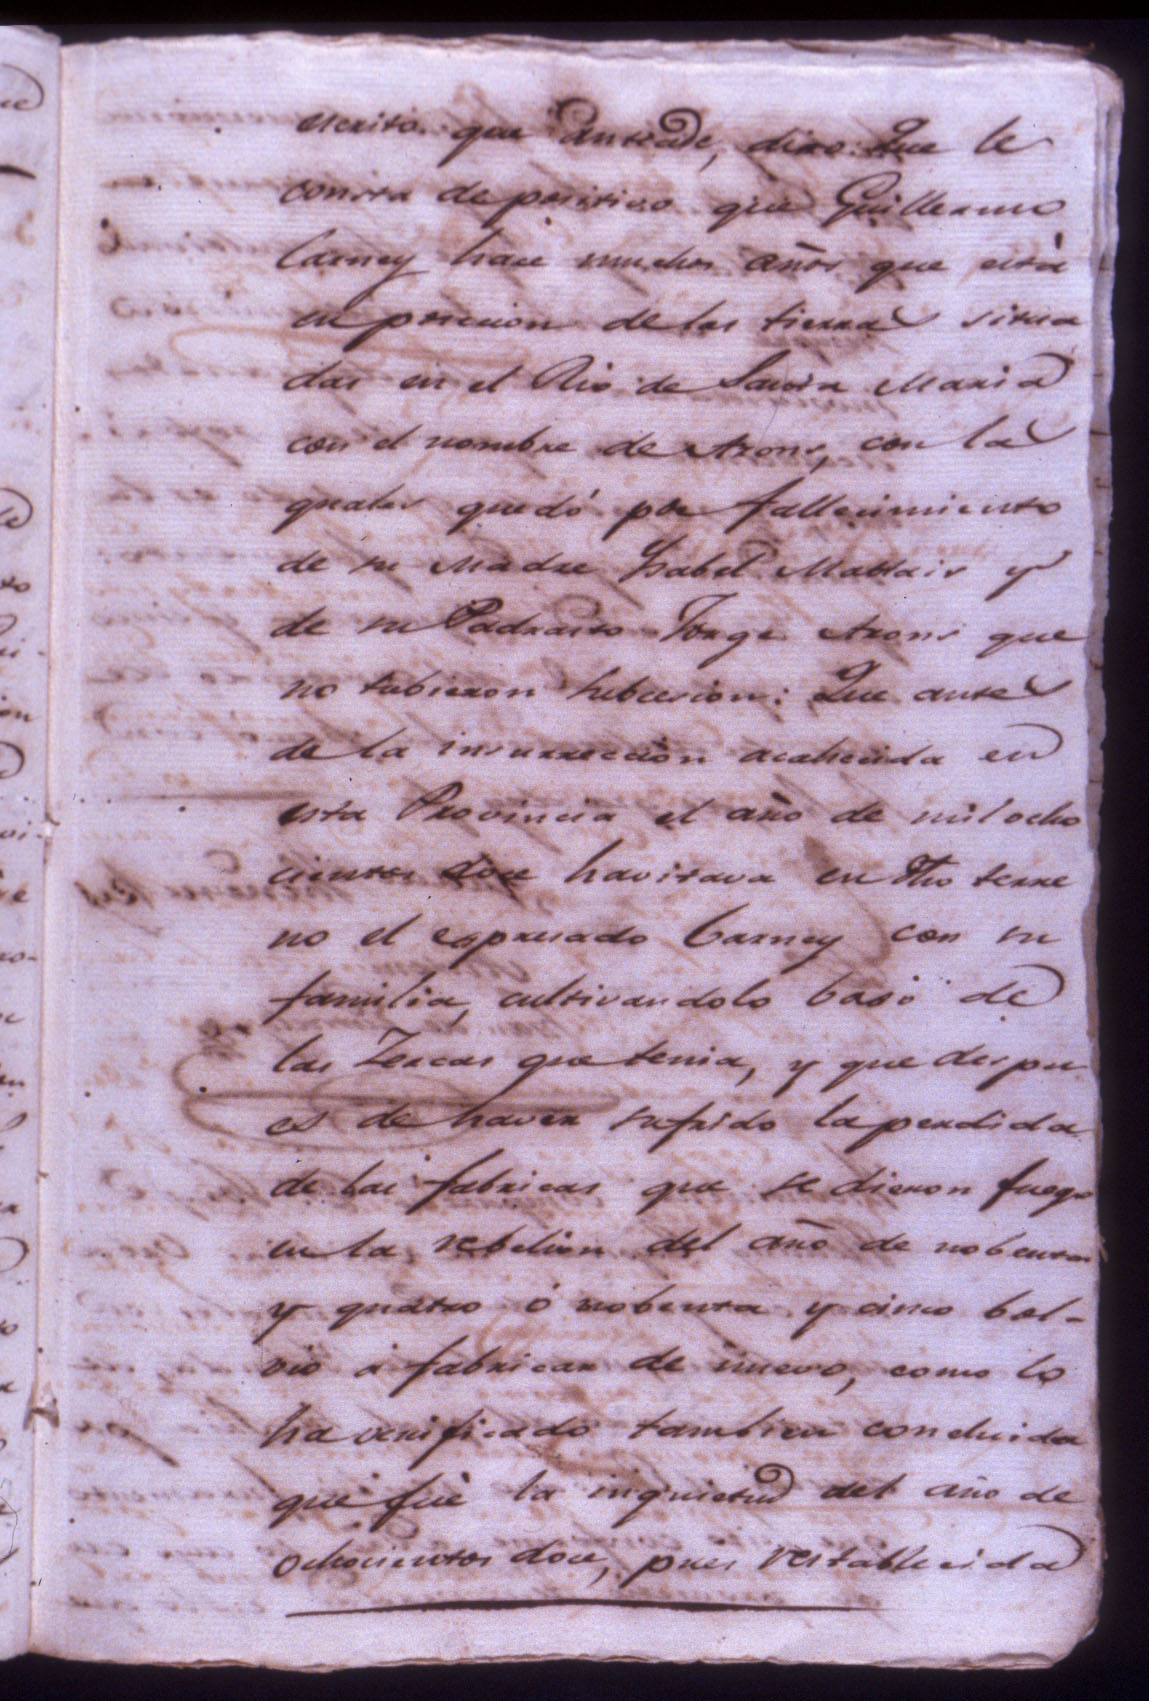 escrito que antecede, dixo: Que le
consta de positivo que Guillermo
Carney hace muchos años que está
en posecion de las tierras situa
das en el Rio de Santa Maria
con el nombre de Arons, con la
quales quedó por fallecimiento
de su Madre Ysabel y
de su Padrasto Jorge Arons que
no tubieron subcesion: Que antes
de la insurreccion acahecida en
esta Provincia el año de mil ocho
cientos doce havitava en dho terre
no el espresado Carney con su
familia, cultivandolo baxo de
las Zercas que tenia, y que despu
es de haver sufrido la perdida
de las fabricas que se dieron fuego
en la rebelion del año de nobenta
y quatro ó nobenta y cinco bol-
vió a fabricar de nuevo, como lo
ha verificado tambien concluida
que fué la inquietud del año de
ochocientos doce, pues restablecida